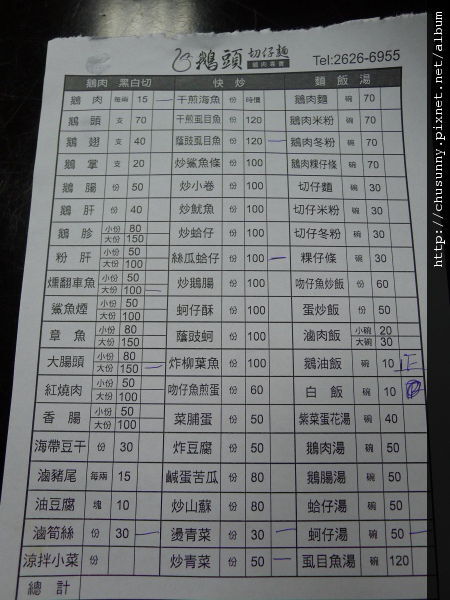 鵝頭 切仔麵
鵝肉專賣
Tel:2626-6955
鵝肉 黑白切 快炒 麵飯湯
鵝肉 每兩 15 一 干煎海魚 份 時價 鵝肉麵 碗 70
鵝頭 支 70 干煎虱目魚 份 120 鵝肉米粉 碗 70
鵝翅 支 40 蔭豉虱目魚 份 120 一 鵝肉冬粉 碗 70
鵝掌 支 20 炒鯊魚條 份 100 鵝肉粿仔條 碗 70
鵝腸 份 50 炒小卷 份 100 切仔麵 碗 30
鵝肝 份 40 炒魷魚 份 100 切仔米粉 碗 30
鵝胗 小份 80 大份 150 炒蛤仔 份 100 切仔冬粉 碗 30
粉肝 小份 50 大份 100 絲瓜蛤仔 份 100 一 粿仔條 碗 30
燻翻車魚 小份 50 大份 100 一 炒鵝腸 份 100 吻仔魚炒飯 份 60
鯊魚煙 小份 50 大份 100 蚵仔酥 份 100 蛋炒飯 份 50
章魚 小份 80 大份 150 蔭豉蚵 份 100 滷肉飯 小碗 20 大碗 30
大腸頭 小份 80 大份 150 一 炸柳葉魚 份 100 鵝油飯 碗 10 正
紅燒肉 小份 50 大份 100 吻仔魚煎蛋 份 60 白飯 碗 10
香腸 小份 50 大份 100 菜脯蛋 份 50 紫菜蛋花湯 碗 40
海帶豆干 份 30 炸豆腐 份 50 鵝肉湯 碗 50
滷豬尾 每兩 15 鹹蛋苦瓜 份 80 鵝腸湯 碗 50
油豆腐 塊 10 炒山蘇 份 80 蛤仔湯 碗 50
滷筍絲 份 30 一 燙青菜 份 30 一 蚵仔湯 碗 50 一
涼拌小菜 份 炒青菜 份 50 一 虱目魚湯 碗 120
總計
http://chusunny.pixnet.net/album